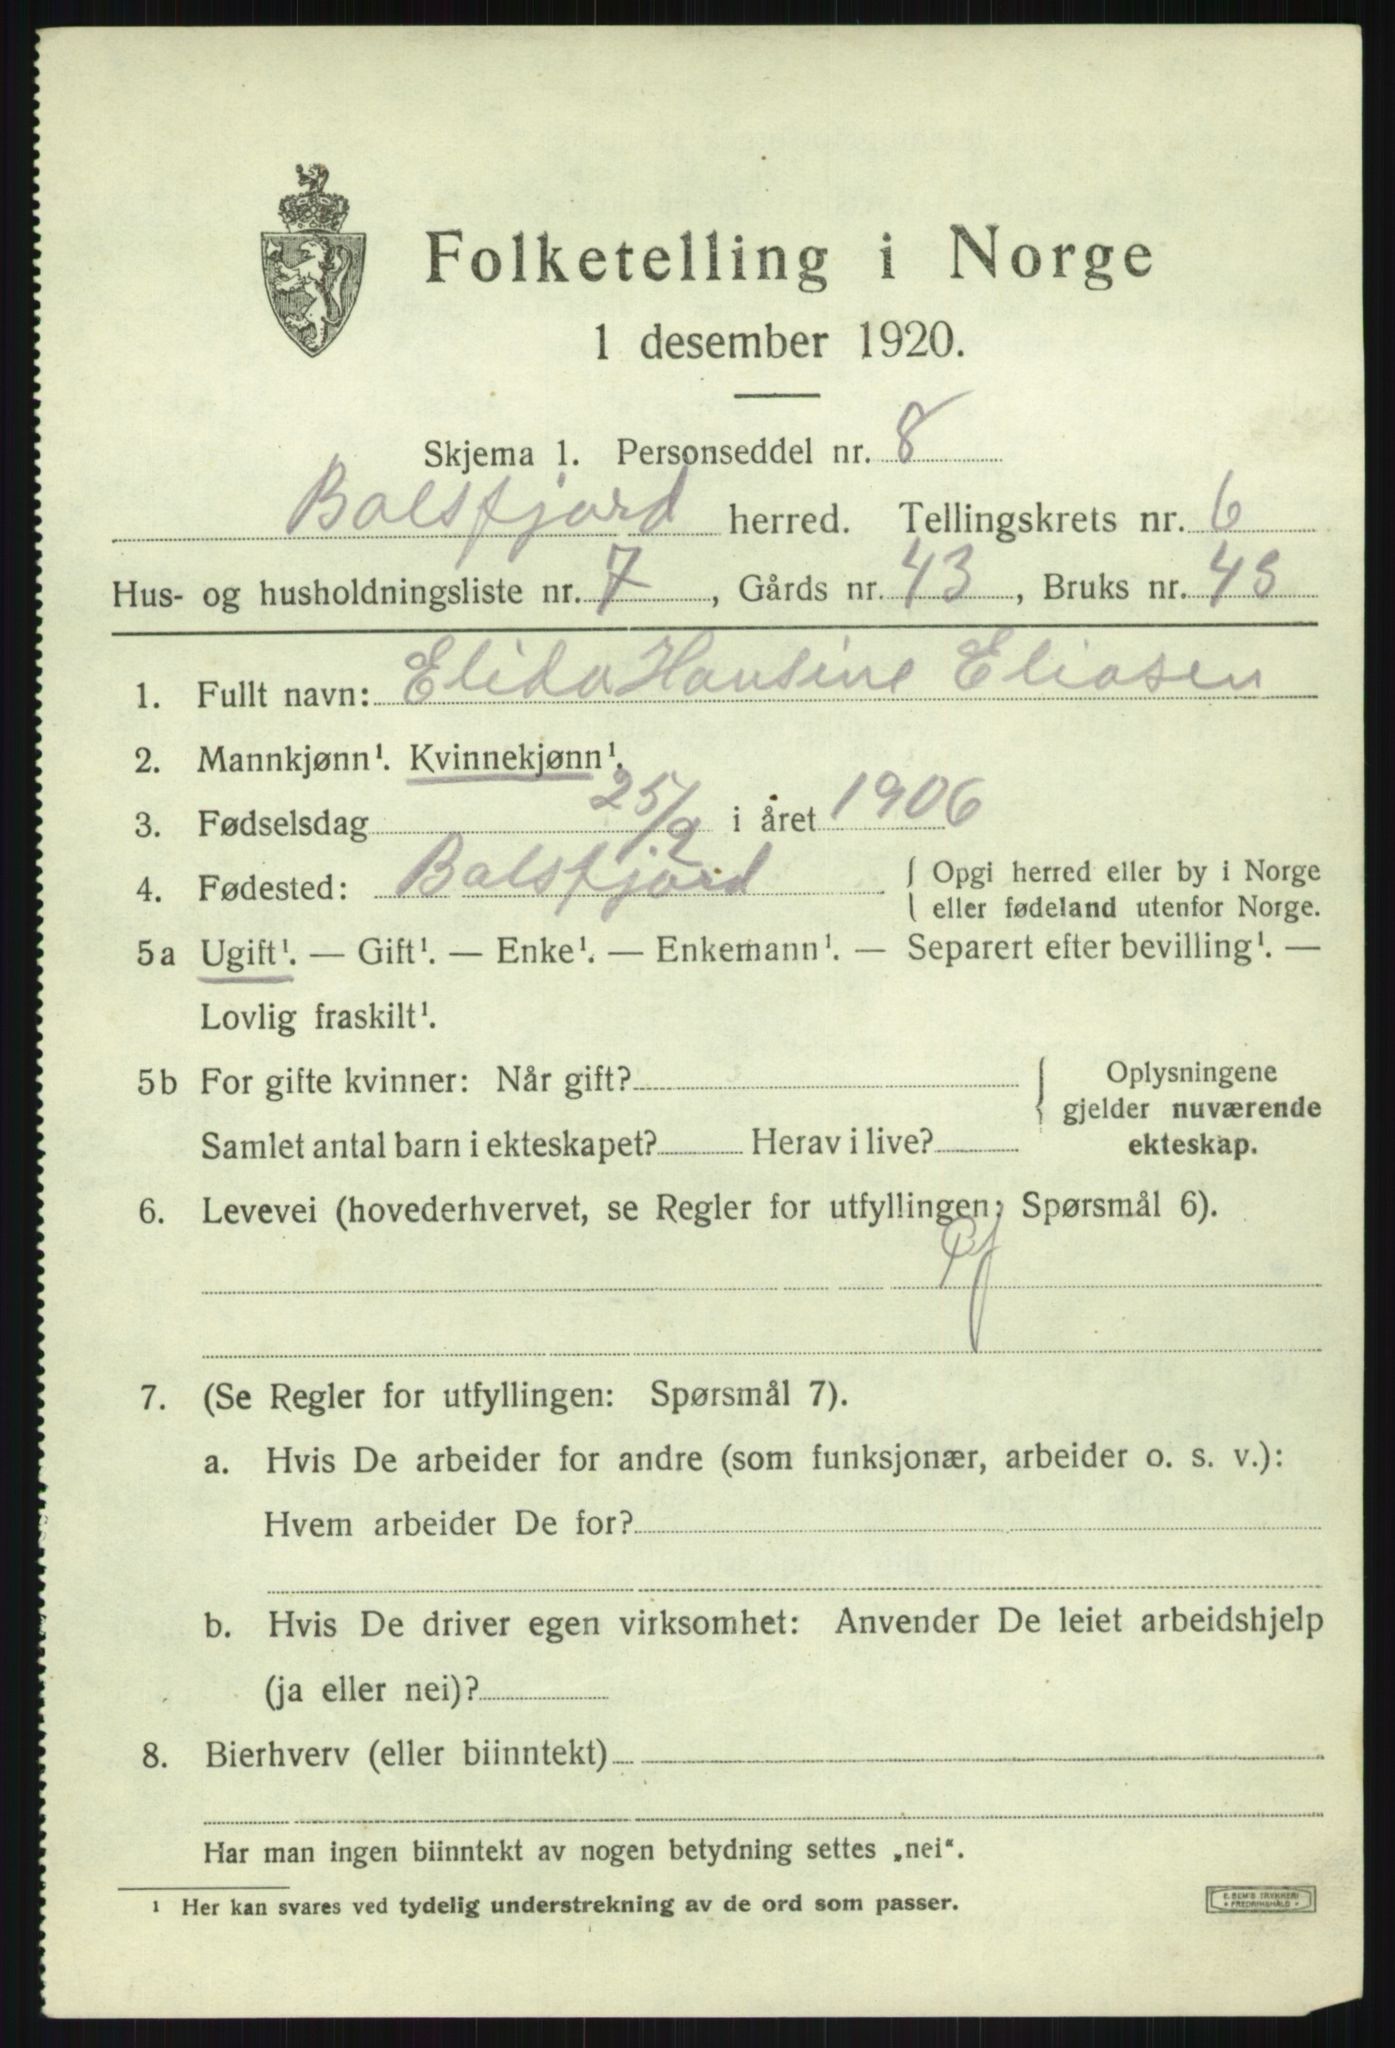 Folketelling i Norge
1 desember 1920.
Skjema 1. Personseddel nr. 8
Balsfjord herred. Tellingskrets nr. 6
Hus- og husholdningsliste nr. 7, Gårds nr. 43, Bruks nr. 43
1. Fullt navn: Elida Hansine Eliasen
2. Mannkjønn¹. Kvinnekjønn¹.
3. Fødselsdag 25/2 i året 1906
4. Fødested: Balsfjord { Opgi herred eller by i Norge
eller fødeland utenfor Norge.
5a Ugift¹. — Gift¹. — Enke¹. — Enkemann¹. — Separert efter bevilling¹. —
Lovlig fraskilt¹.
5b For gifte kvinner: Når gift? { Oplysningene
gjelder nuværende
Samlet antal barn i ekteskapet? Herav i live? ekteskap.
6. Levevei (hovederhvervet, se Regler for utfyllingen; Spørsmål 6).
Pf
7. (Se Regler for utfyllingen: Spørsmål 7).
a. Hvis De arbeider for andre (som funksjonær, arbeider o. s. v.):
Hvem arbeider De for?
b. Hvis De driver egen virksomhet: Anvender De leiet arbeidshjelp
(ja eller nei)?
8. Bierhverv (eller biinntekt)
Har man ingen biinntekt av nogen betydning settes „nei“.
¹ Her kan svares ved tydelig understrekning av de ord som passer.
E. SEM'S TRYKKERI
• FREDRIKSHALD •